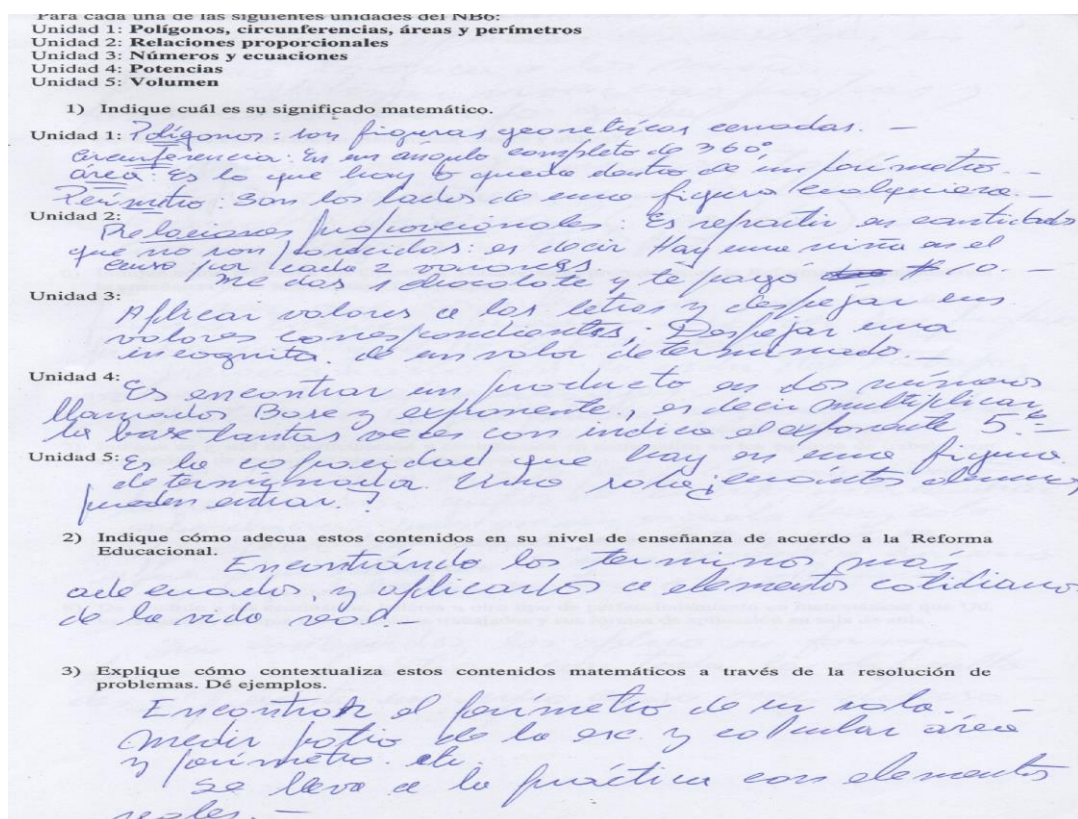 Para cada una de las siguientes unidades del NB6:
Unidad 1: Polígonos, circunferencias, áreas y perímetros
Unidad 2: Relaciones proporcionales
Unidad 3: Números y ecuaciones
Unidad 4: Potencias
Unidad 5: Volumen
1) Indique cuál es su significado matemático.
Unidad 1: Polígonos: son figuras geométricas cerradas. –
Circunferencia: Es un ángulo completo de 360°
área: Es lo que hay o queda dentro de un perímetro. –
Perímetro: Son los lados de una figura cualquiera. –
Unidad 2:
Relaciones proporcionales: Es repartir en cantidades
que no son parecidas: es decir Hay una niña en el
curso por cada 2 varones
me das 1 chocolate y te pago $10. –
Unidad 3:
Aplicar valores a las letras y despejar sus
valores correspondientes; Despejar una
incognita. de un valor determinado. –
Unidad 4:
Es encontrar un producto en dos números
llamados Base y exponente, es decir multiplicar
la base tantas veces con indica el exponente 5. –
Unidad 5: Es la capacidad que hay en una figura
determinada. Una sala ¿cuántos alumnos
pueden entrar?
2) Indique cómo adecua estos contenidos en su nivel de enseñanza de acuerdo a la Reforma
Educacional.
Encontrándo los terminos más
adecuados, y aplicarlos a elementos cotidianos
de la vida real. –
3) Explique cómo contextualiza estos contenidos matemáticos a través de la resolución de
problemas. Dé ejemplos.
Encontrar el perímetro de un sala. –
Medir patio de la esc. y calcular área
y perímetro. etc.
Se lleva a la práctica con elementos
reales. –